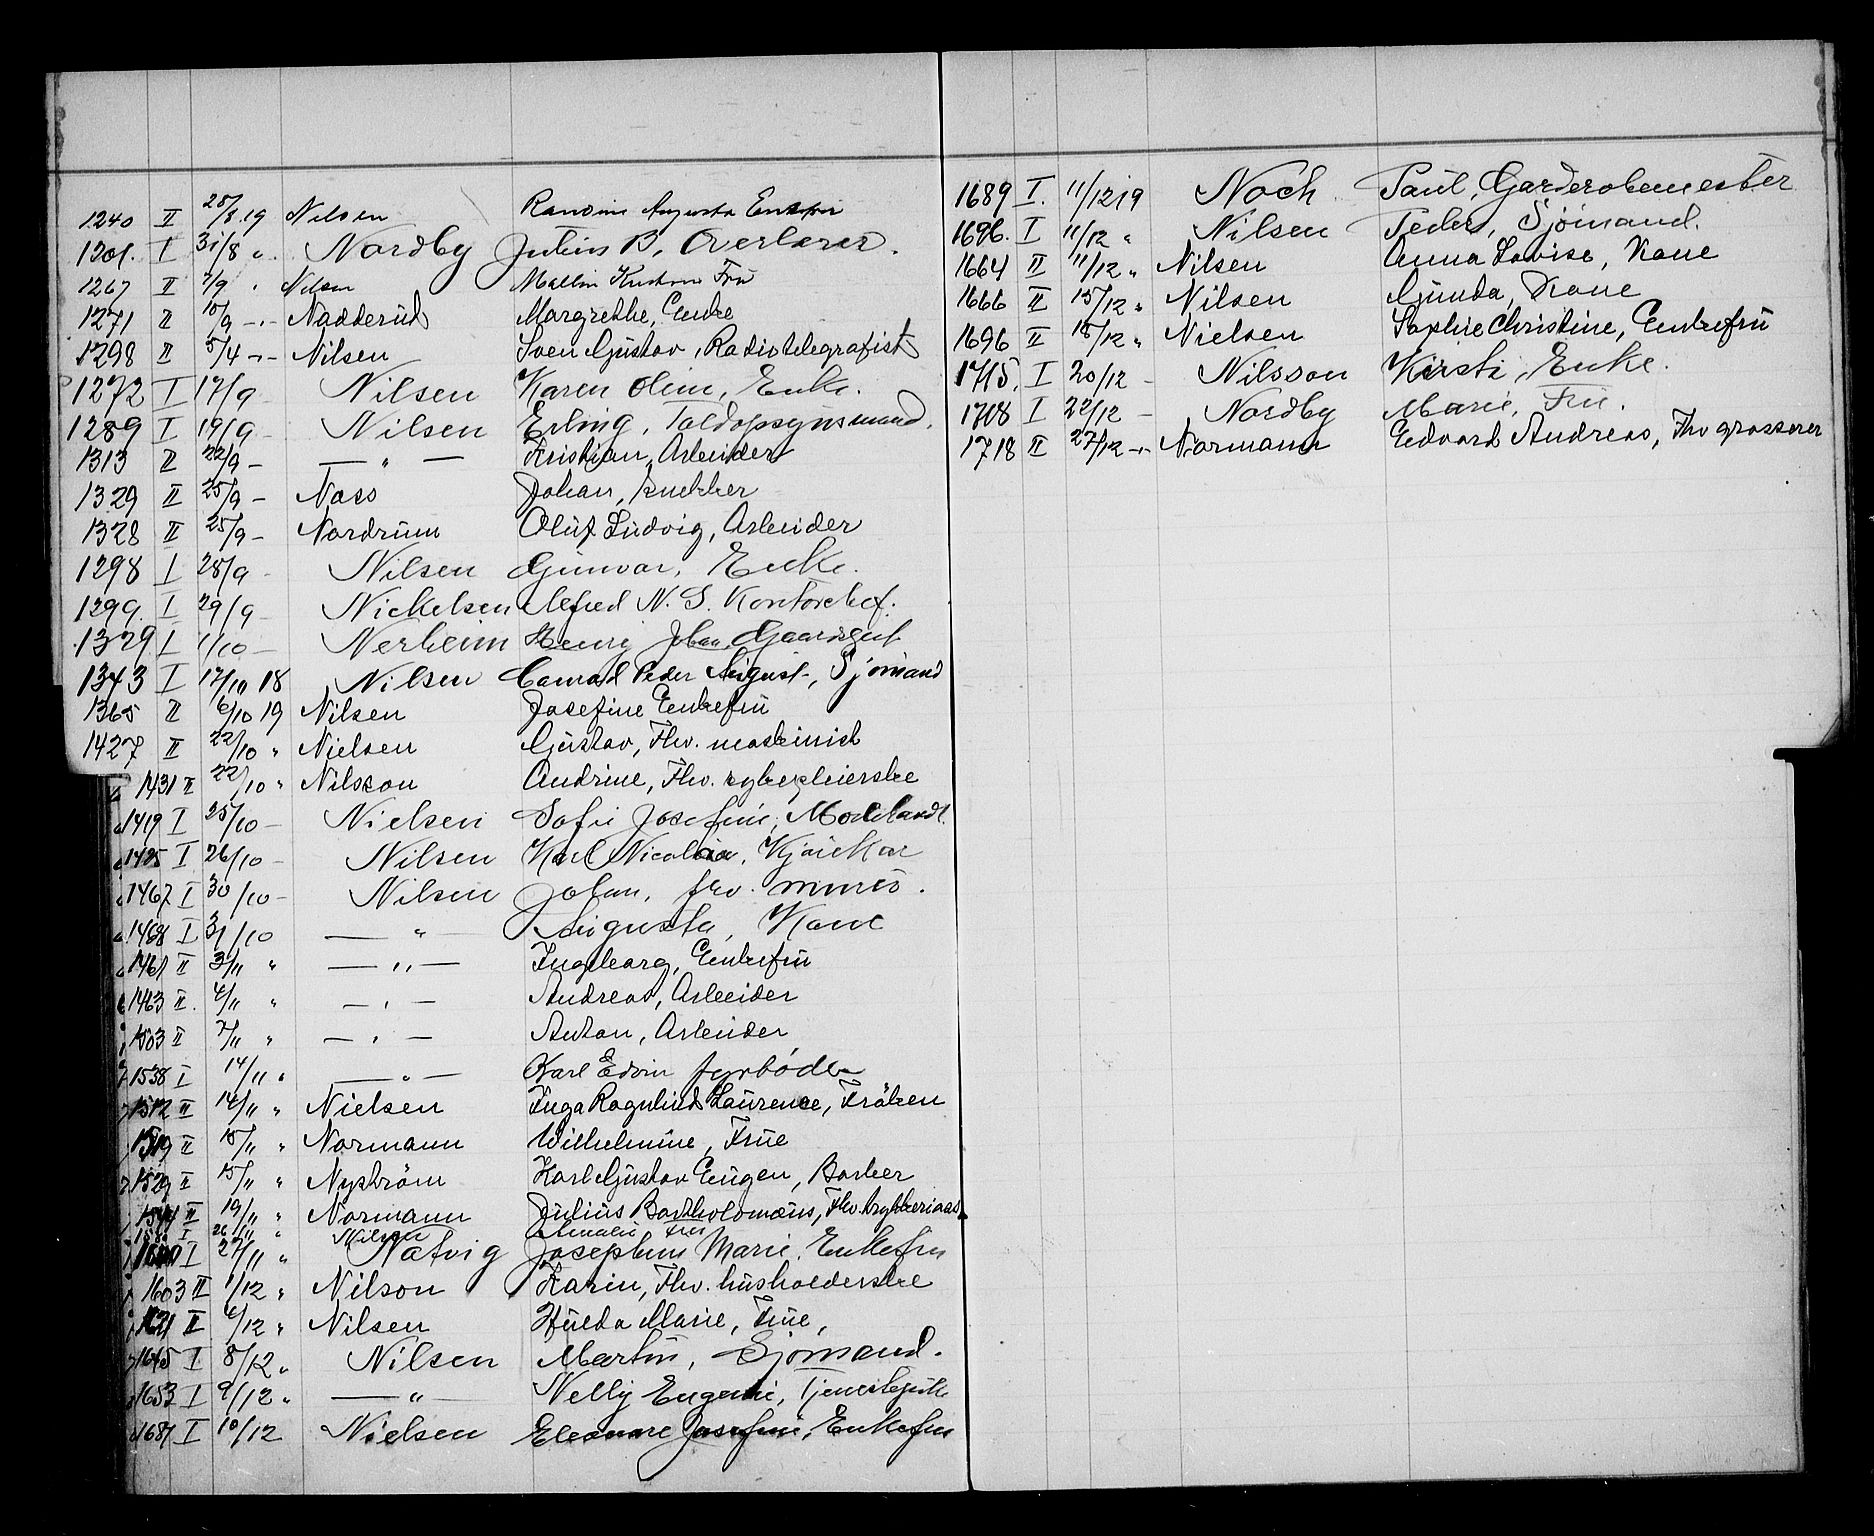 1240 II 28/8 19 Nilsen Randine Augusta Enkefru
1201. I 31/8 " Nordby Julius B. Overlærer.
1267 II 7/9 " Nilsen Mallin Kristine Fru
1271 II 10/9 -"- Nadderud Margrethe, Enke
1298 II 5/4 -"- Nilsen Sven Gustav, Radiotelegrafist
1272 I 17/9 - Nilsen Karen Oline, Enke.
1289 I 19/9 - Nilsen Erling, Toldopsynsmand.
1313 II 22/9 - — " — Kristian, Arbeider
1329 II 25/9 - Næss Johan, Snekker
1328 II 25/9 - Nordrum Oluf Ludvig, Arbeider
1298 I 28/9 - Nilsen Gunvor, Enke.
1299. I 29/9 - Nickelsen Alfred N. S. Kontorchef.
1329 I 1/10 - Nerheim Henry Johan, Gaardgut
1343 I 17/10 18 Nilsen Conrad Peder August, Sjømand
1365 II 6/10 19 Nilsen Josefine Enkefru
1427 II 22/10 " Nielsen Gustav, Fhv. maskinist
1431 II 22/10 " Nilsson Andrine, Fhv. sykepleierske
1419 I 25/10 - Nielsen Sofie Josefine, Modehandl.
1425 I 26/10 - Nilsen Karl Nicolai, Kjørekar
1467 I 30/10 - Nilsen Johan, fhv. murer.
1468 I 31/10 — " — Augusta, Kone
1461 II 3/11 " — " — Ingeborg, Enkefru
1463 II. 4/11 " — " — Andreas, Arbeider
1503 II 7/11 " — " — Anton, Arbeider
1538 I 14/11 " — " — Karl Edvin fyrbøder
1512 II 14/11 " Nielsen Inga Ragnhild Laurence, Frøken
1519 II 15/11 " Normann Wilhelmine, Frue
1529 II 15/11 " Nystrøm Karl Gustav Eugen, Barber
1544 II 19/11 " Normann Julius Bartholomæus, Fhv. bryggeriarb.
I 26/11 " Nilsen Amalie Fru
I 27/11 " Natvig Josephine Marie, Enkefru
1603 II 1/12 " Nilson Karin, Fhv. husholderske
1621 II 6/12 " Nilsen Hulda Marie, Frue,
1645 I 8/12 " Nilsen Martin, Sjømand.
1653 I 9/12 " — " — Nelly Eugenie, Tjenestepike
1681 I 10/12 Nielsen Eleonore Josefine, Enkefru
1689 I. 11/12 19 Noch Paul, Garderobemester
1696. I 11/12 " Nilsen Peder, Sjømand.
1664 II 11/12 " Nilsen Anna Lovise, Kone
1666 II 15/12 " Nilsen Gunda, Kone
1696 II 18/12 " Nielsen Sophie Christine, Enkefru
1715. I 20/12 - Nilsson Kirsti, Enke.
1708 I 22/12 - Nordby Marie, Fru.
1718 II 27/12 -"- Normann Edvard Andreas, Fhv grosserer